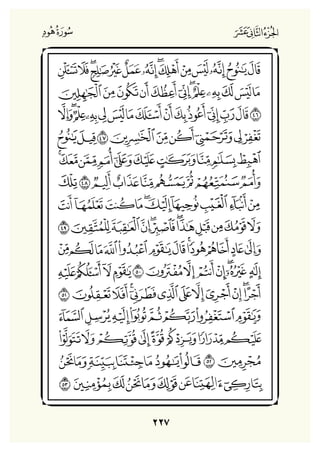 سُورَةُ هُودٍ
الجُزْءُ الثَّانِي عَشَرَ
قَالَ يَٰنُوحُ إِنَّهُۥ لَيْسَ مِنْ أَهْلِكَ ۖ إِنَّهُۥ عَمَلٌ غَيْرُ صَٰلِحٍ ۖ فَلَا تَسْـَٔلْنِ
مَا لَيْسَ لَكَ بِهِۦ عِلْمٌ ۖ إِنِّىٓ أَعِظُكَ أَن تَكُونَ مِنَ ٱلْجَٰهِلِينَ
٤٦ قَالَ رَبِّ إِنِّىٓ أَعُوذُ بِكَ أَنْ أَسْـَٔلَكَ مَا لَيْسَ لِى بِهِۦ عِلْمٌ ۖ وَإِلَّا
تَغْفِرْ لِى وَتَرْحَمْنِىٓ أَكُن مِّنَ ٱلْخَٰسِرِينَ ٤٧ قِيلَ يَٰنُوحُ
ٱهْبِطْ بِسَلَٰمٍ مِّنَّا وَبَرَكَٰتٍ عَلَيْكَ وَعَلَىٰٓ أُمَمٍ مِّمَّن مَّعَكَ ۚ
وَأُمَمٌ سَنُمَتِّعُهُمْ ثُمَّ يَمَسُّهُم مِّنَّا عَذَابٌ أَلِيمٌ ٤٨ تِلْكَ
مِنْ أَنۢبَآءِ ٱلْغَيْبِ نُوحِيهَآ إِلَيْكَ ۖ مَا كُنتَ تَعْلَمُهَآ أَنتَ
وَلَا قَوْمُكَ مِن قَبْلِ هَٰذَا ۖ فَٱصْبِرْ ۖ إِنَّ ٱلْعَٰقِبَةَ لِلْمُتَّقِينَ ٤٩
وَإِلَىٰ عَادٍ أَخَاهُمْ هُودًا ۚ قَالَ يَٰقَوْمِ ٱعْبُدُوا۟ ٱللَّهَ مَا لَكُم مِّنْ
إِلَٰهٍ غَيْرُهُۥٓ ۖ إِنْ أَنتُمْ إِلَّا مُفْتَرُونَ ٥٠ يَٰقَوْمِ لَآ أَسْـَٔلُكُمْ عَلَيْهِ
أَجْرًا ۖ إِنْ أَجْرِىَ إِلَّا عَلَى ٱلَّذِى فَطَرَنِىٓ ۚ أَفَلَا تَعْقِلُونَ ٥١
وَيَٰقَوْمِ ٱسْتَغْفِرُوا۟ رَبَّكُمْ ثُمَّ تُوبُوٓا۟ إِلَيْهِ يُرْسِلِ ٱلسَّمَآءَ
عَلَيْكُم مِّدْرَارًا وَيَزِدْكُمْ قُوَّةً إِلَىٰ قُوَّتِكُمْ وَلَا تَتَوَلَّوْا۟
مُجْرِمِينَ ٥٢ قَالُوا۟ يَٰهُودُ مَا جِئْتَنَا بِبَيِّنَةٍ وَمَا نَحْنُ
بِتَارِكِىٓ ءَالِهَتِنَا عَن قَوْلِكَ وَمَا نَحْنُ لَكَ بِمُؤْمِنِينَ ٥٣
٢٢٧